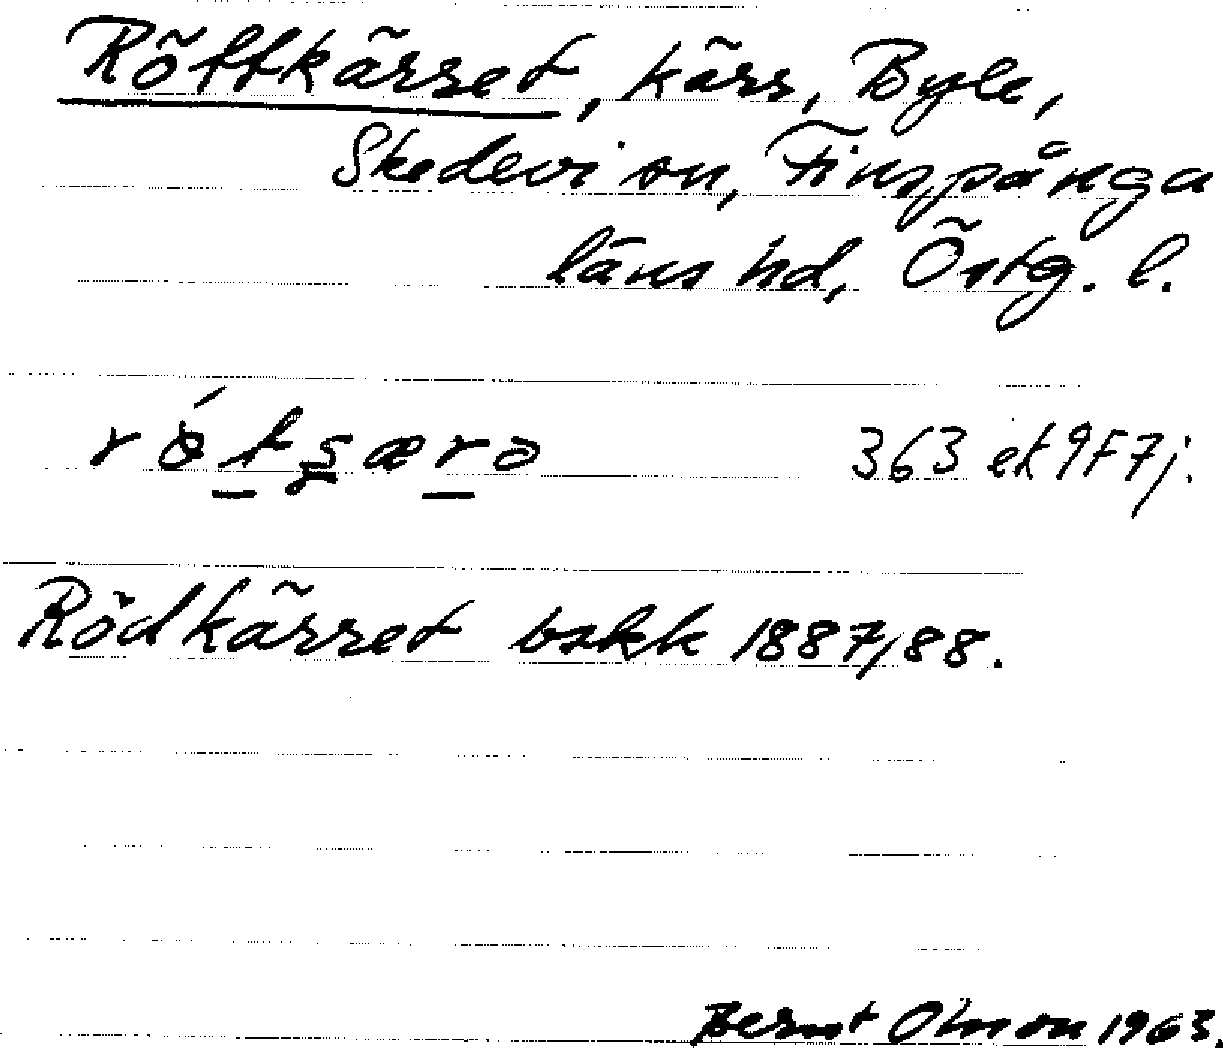 Röttkärret, kärr, Byle,
Skedevi sn, Finspånga
läns hd, Östg. l.
rö́tʂærə 363 ek 9F7j.
Rödkärret bskk 1887/88.
Bernt Olsson 1963.